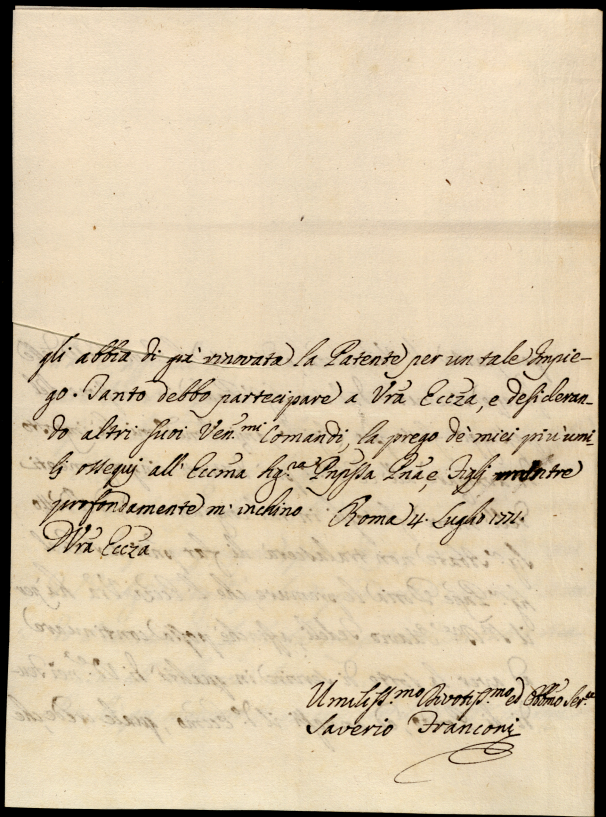 gli abbia di già rinovata la Patente per un tale Impie-
go. Tanto debbo partecipare a Vra Eccza, e desideran-
do altri suoi Ven.mi Comandi, la prego de' miei più umi-
li ossequj all' Eccma Sig.ra Pnpssa Pna, e Figli mentre
profondamente m' inchino. Roma 4. Luglio 1771.
D Vra Eccza
Umiliss.mo Divotiss.mo ed Obbmo Ser.re
Saverio Franconi